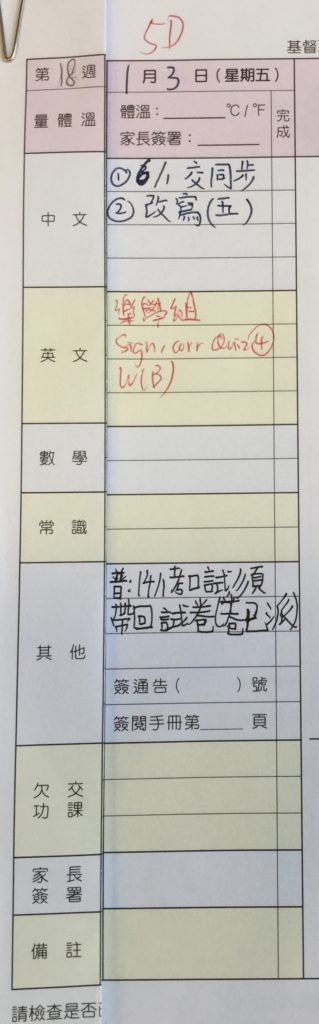 5D
基督
第18週 1月3日(星期五)
量體溫 體溫：______°C/°F 完成
家長簽署：______
中文 ① 6/1 交同步
② 改寫(五)
英文 樂學組
Sign, corr Quiz④
W(B)
數學
常識
其他 普：14/1考口試須
帶回試卷(卷已派)
簽通告(　　)號
簽閱手冊第____頁
欠交功課
家長簽署
備註
請檢查是否